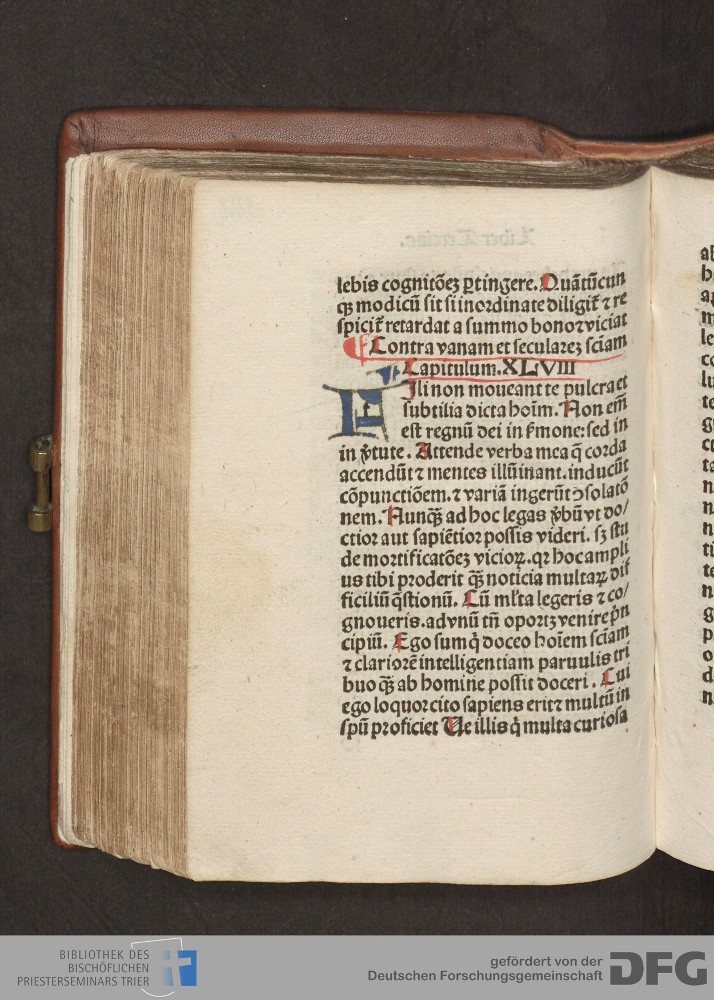 lebis cognitõeꝫ ꝑtingere. Quãtũcun
qꝫ modicũ sit si inordinate diligit̃ ⁊ re
spicit̃ retardat a summo bono ⁊ viciat
Contra vanam et seculareꝫ sciãm
Capitulum. XLVIII
Fili non moueant te pulcra et
subtilia dicta hoĩm. Non em̃
est regnũ dei in s̃mone: sed in
in v̾tute. Attende verba mea q̃ corda
accendũt ⁊ mentes illũinant. inducũt
cõpunctiõem. ⁊ variã ingerũt ↄsolatõ
nem. Nunqꝫ ad hoc legas v̾bũ vt do/
ctior aut sapiẽtior possis videri. sꝫ stu
de mortificatõeꝫ vicioꝝ. qꝛ hoc ampli
us tibi proderit qꝫ noticia multaꝝ dif
ficiliũ q̃stionũ. Cũ ml̃ta legeris ⁊ co/
gnoueris. ad vnũ tñ oportꝫ venire pñ
cipiũ. Ego sum q̇ doceo hoĩem sciãm
⁊ clariorẽ intelligentiam paruulis tri
buo qꝫ ab homine possit doceri. Cui
ego loquor cito sapiens erit ⁊ multũ in
spũ proficiet Ve illis q̇ multa curiosa
Liber Tercius.
BIBLIOTHEK DES
BISCHÖFLICHEN
PRIESTERSEMINARS TRIER
gefördert von der
Deutschen Forschungsgemeinschaft
DFG